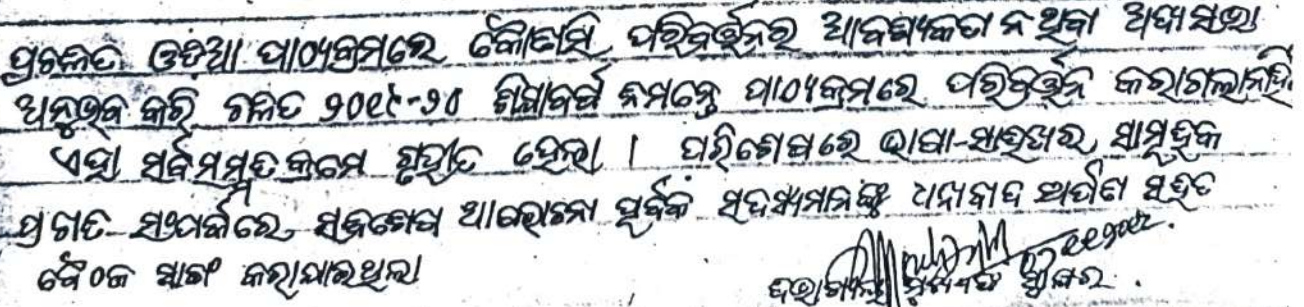 ପ୍ରଚଳିତ ଓଡ଼ିଆ ପାଠ୍ୟକ୍ରମରେ କୌଣସି ପରିବର୍ତ୍ତନର ଆବଶ୍ୟକତା ନ ଥିବା
ଅନୁଭବ କରି ଚଳିତ ୨୦୧୯-୨୦ ଶିକ୍ଷାବର୍ଷ ନିମନ୍ତେ ପାଠ୍ୟକ୍ରମରେ ପରିବର୍ତ୍ତନ କରାଗଲାନାହିଁ
ଏହା ସର୍ବସମ୍ମତ କ୍ରମେ ଗୃହୀତ ହେଲା । ପରିଶେଷରେ ଭାଷା-ସାହିତ୍ୟର ସାମୂହିକ
ପ୍ରଗତି ସଂପର୍କରେ ସବିଶେଷ ଆଲୋଚନା ପୂର୍ବକ ସଦସ୍ୟମାନଙ୍କୁ ଧନ୍ୟବାଦ ଅର୍ପଣ ସହିତ
ବୈଠକ ସାଙ୍ଗ କରାଯାଇଥିଲା